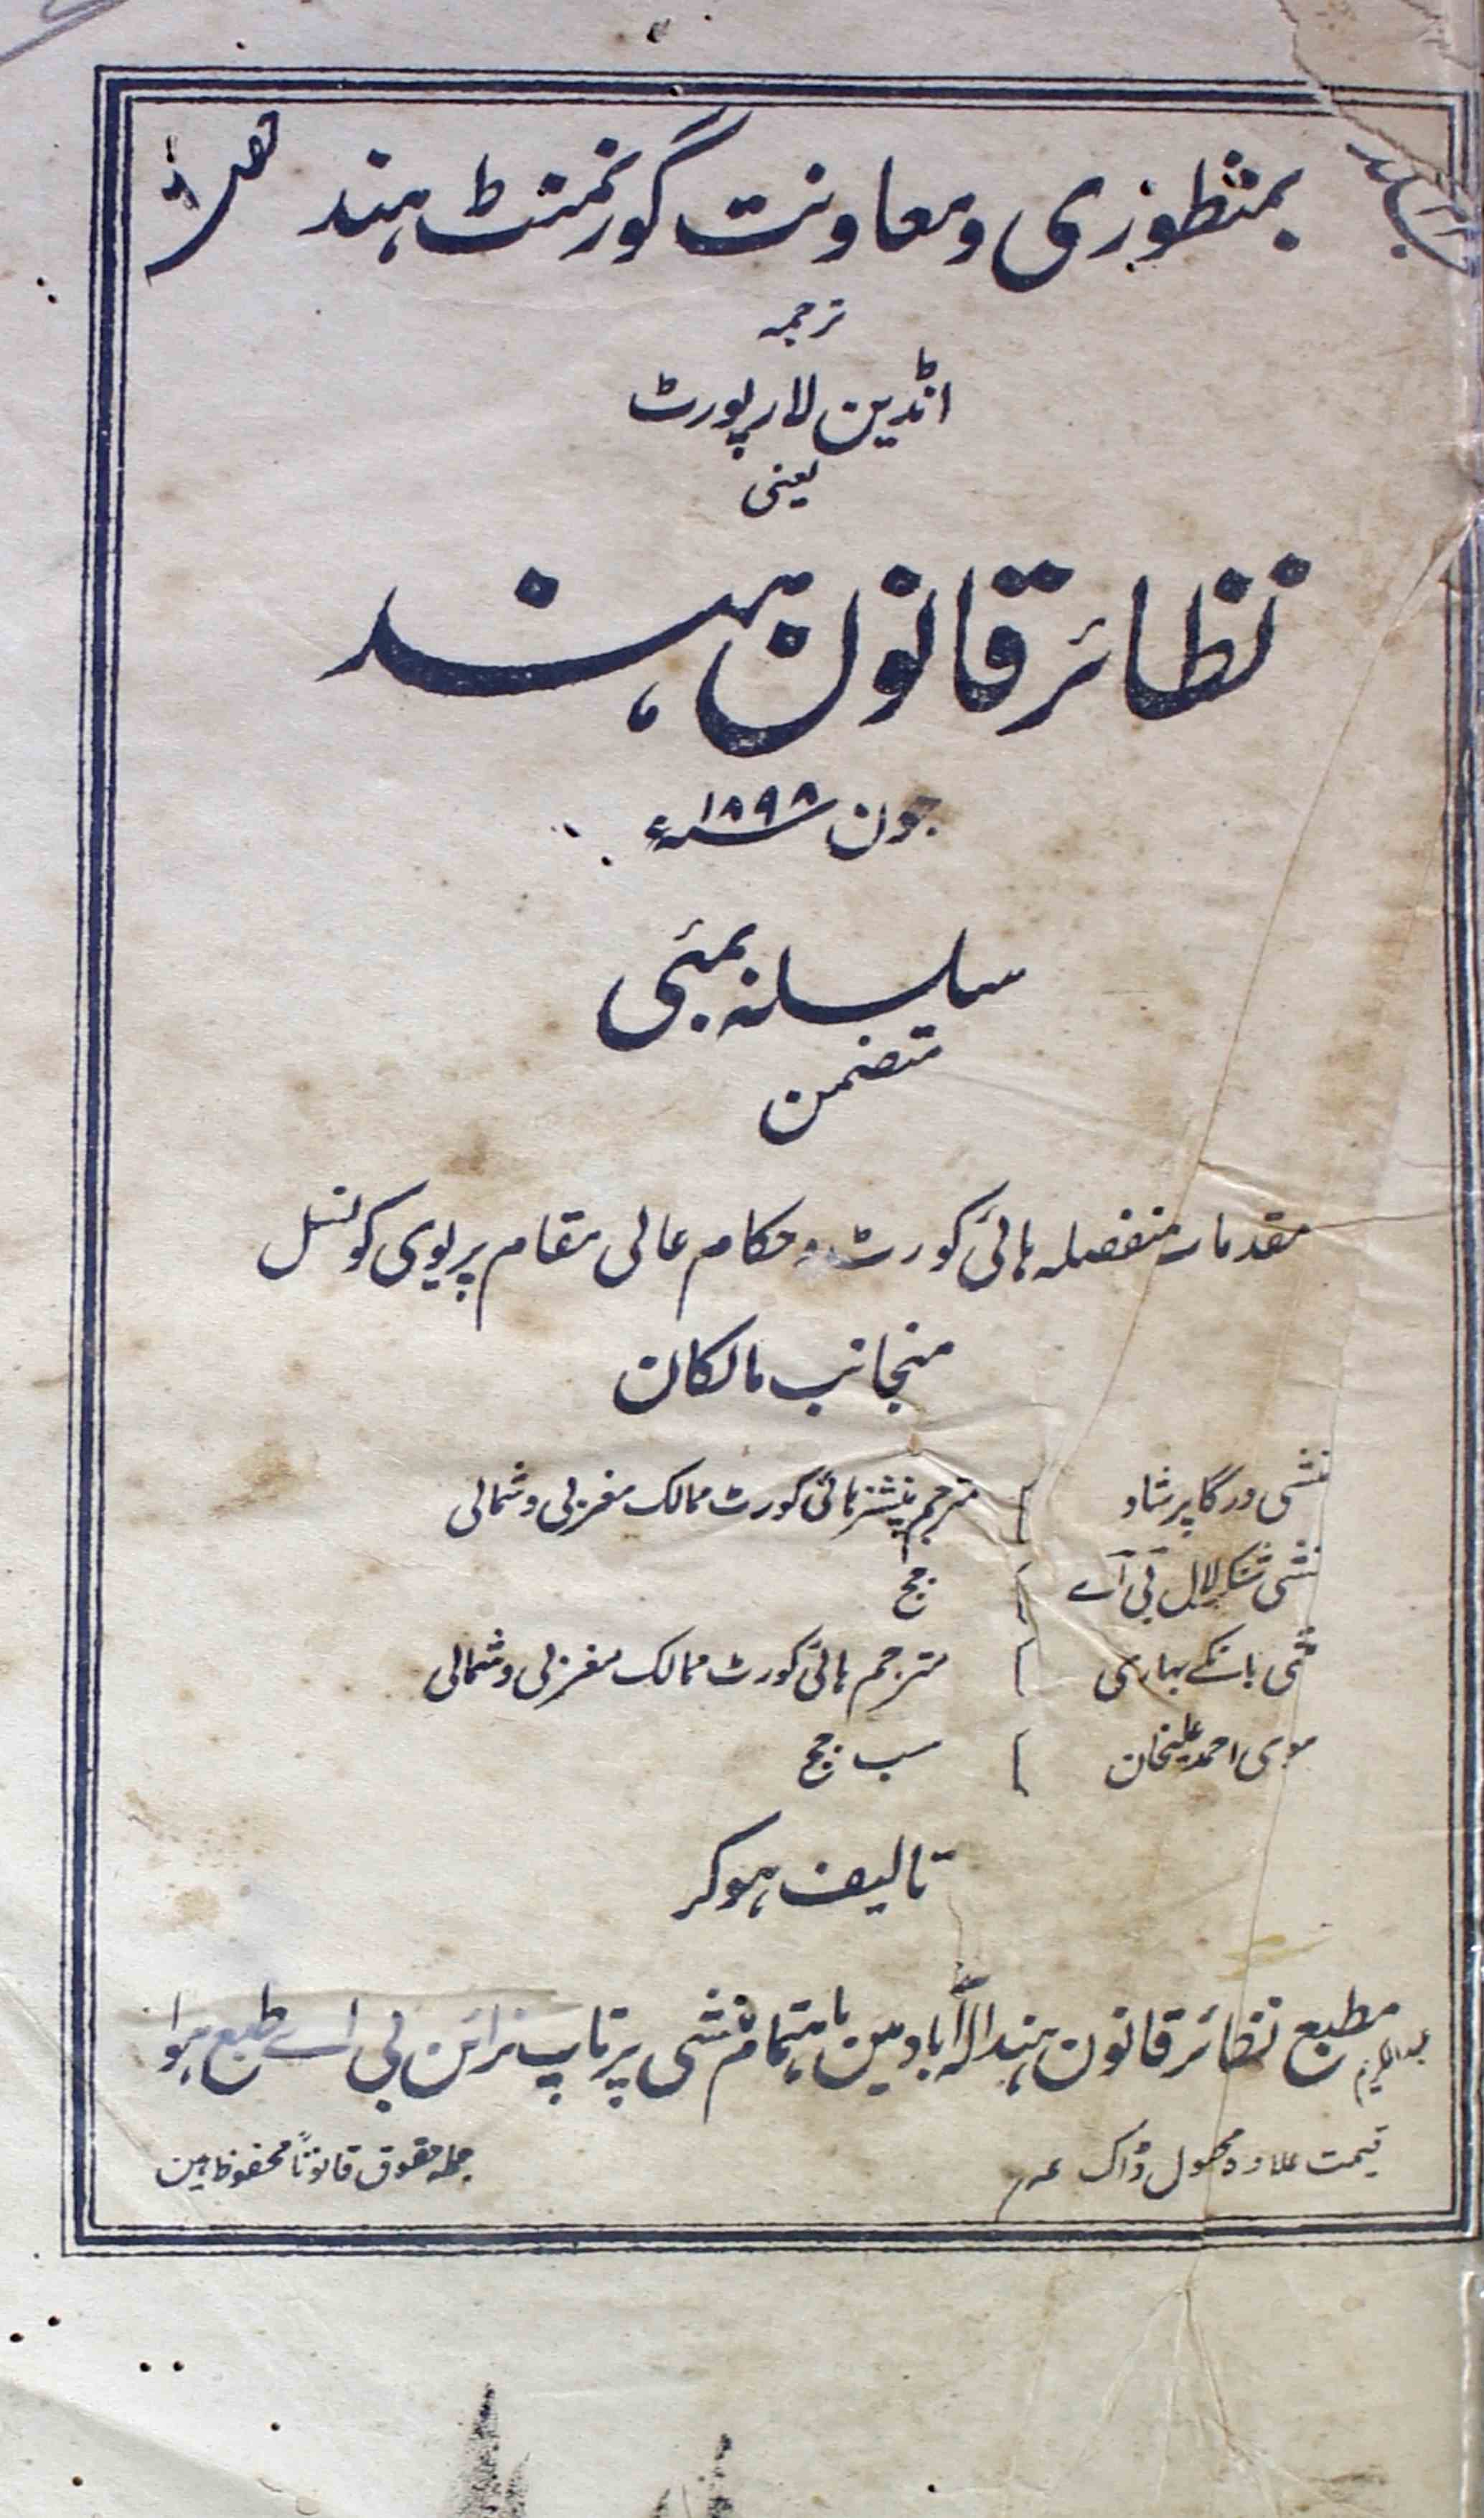 بمنظوری و معاونت گورنمنٹ ہند
ترجمہ
انڈین لا رپورٹ
یعنی
نظائر قانون ہند
جون ۱۸۹۸ء
سلسلہ بمبئی
متضمن
مقدمات منفصلہ ہائی کورٹ و حکام عالی مقام پریوی کونسل
منجانب مالکان
منشی درگا پرشاد } مترجم پنشنر ہائی کورٹ ممالک مغربی و شمالی
منشی شنکر لال بی اے } جج
منشی بانکے بہاری } مترجم ہائی کورٹ ممالک مغربی و شمالی
مولوی احمد علیخان } سب جج
تالیف ہوکر
مطبع نظائر قانون ہند الہ آباد مین باہتمام منشی پرتاپ نرائن بی اے طبع ہوا
عبدالکریم
قیمت علاوہ محصول ڈاک
جملہ حقوق قانوناً محفوظ ہین